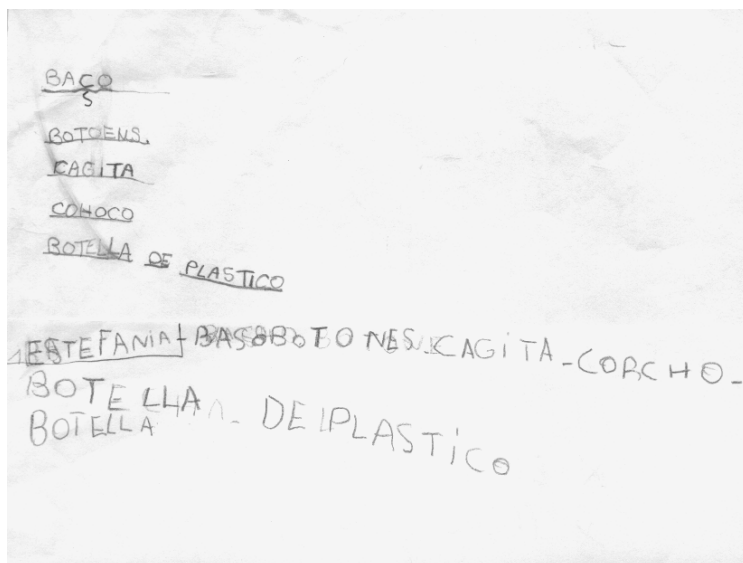 BAÇO
S
BOTOENS.
CAGITA
COHOCO
BOTELLA DE PLASTICO
ESTEFANIA BASOBOTONES. CAGITA - CORCHO -
BOTELLA - DE PLASTICO
BOTELLA